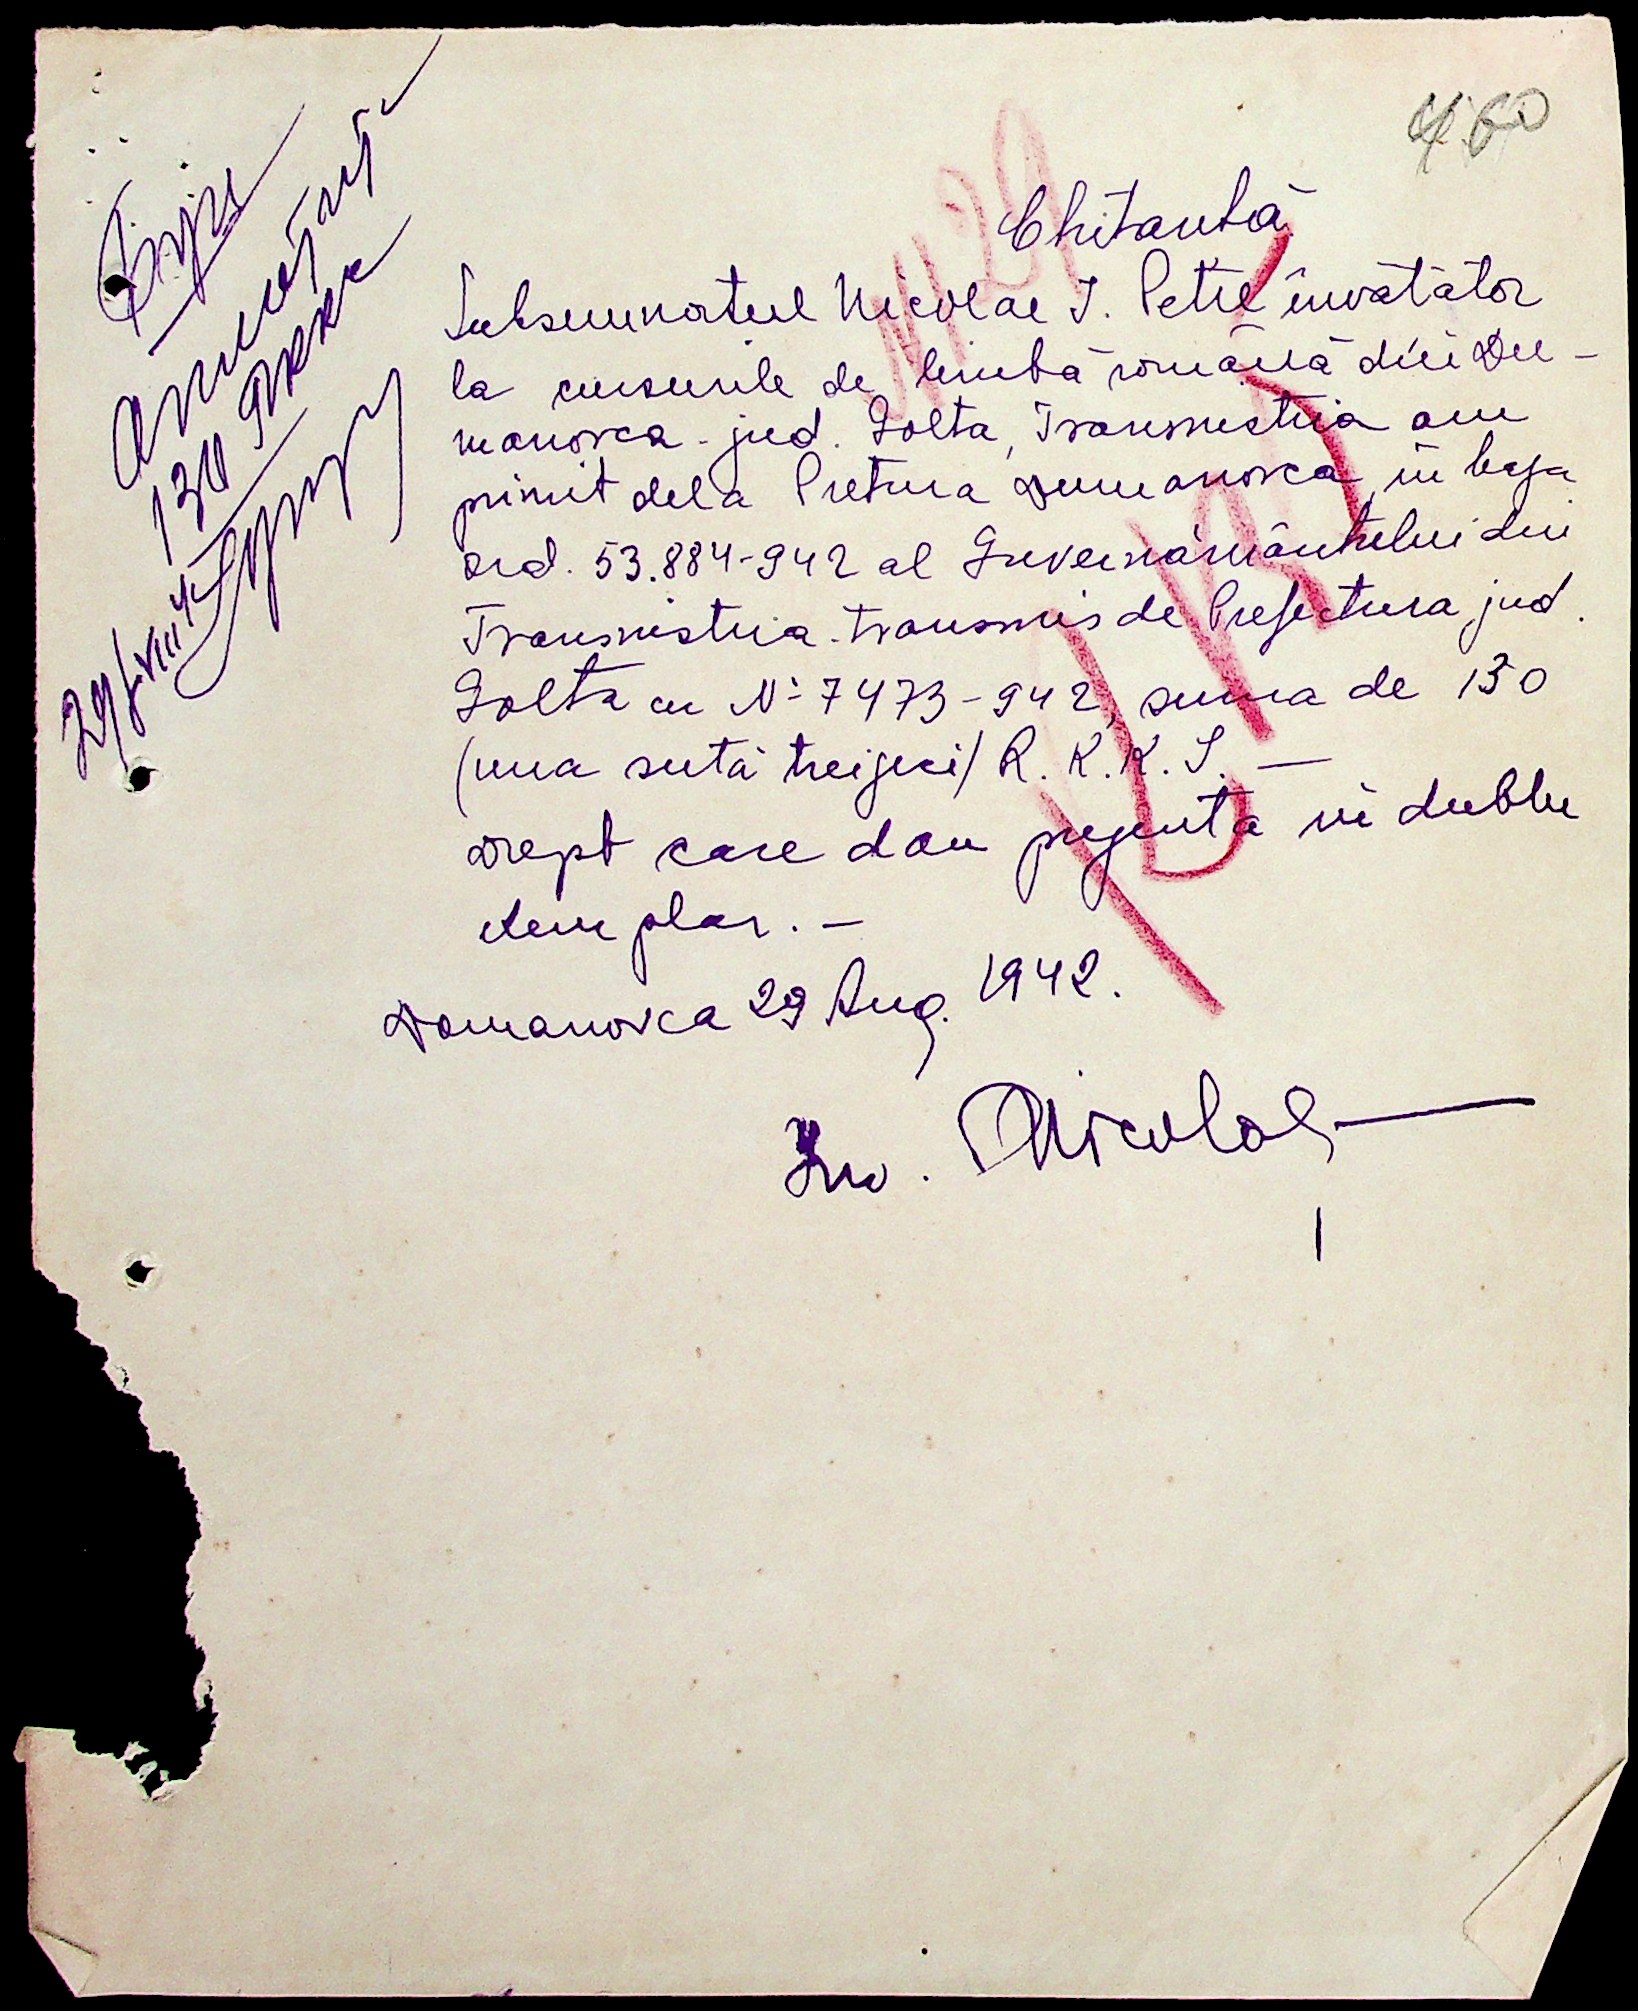 460
Chitanță
Subsemnatul Nicolae I. Petre învătător
la cursurile de limbă română din Du-
manovca - jud. Golta, Transnistria am
primit dela Pretura Dumanovca, în baza
ord. 53.884-942 al Guvernământului din
Transnistria - transmis de Prefectura jud.
Golta cu Nº 7473-942, suma de 130
(una sută treizeci) R.K.K.S. —
drept care dau prezenta în dublu
exemplar. —
Domanovca 29 Aug. 1942.
Inv. Nicolae
130
29/VIII 42